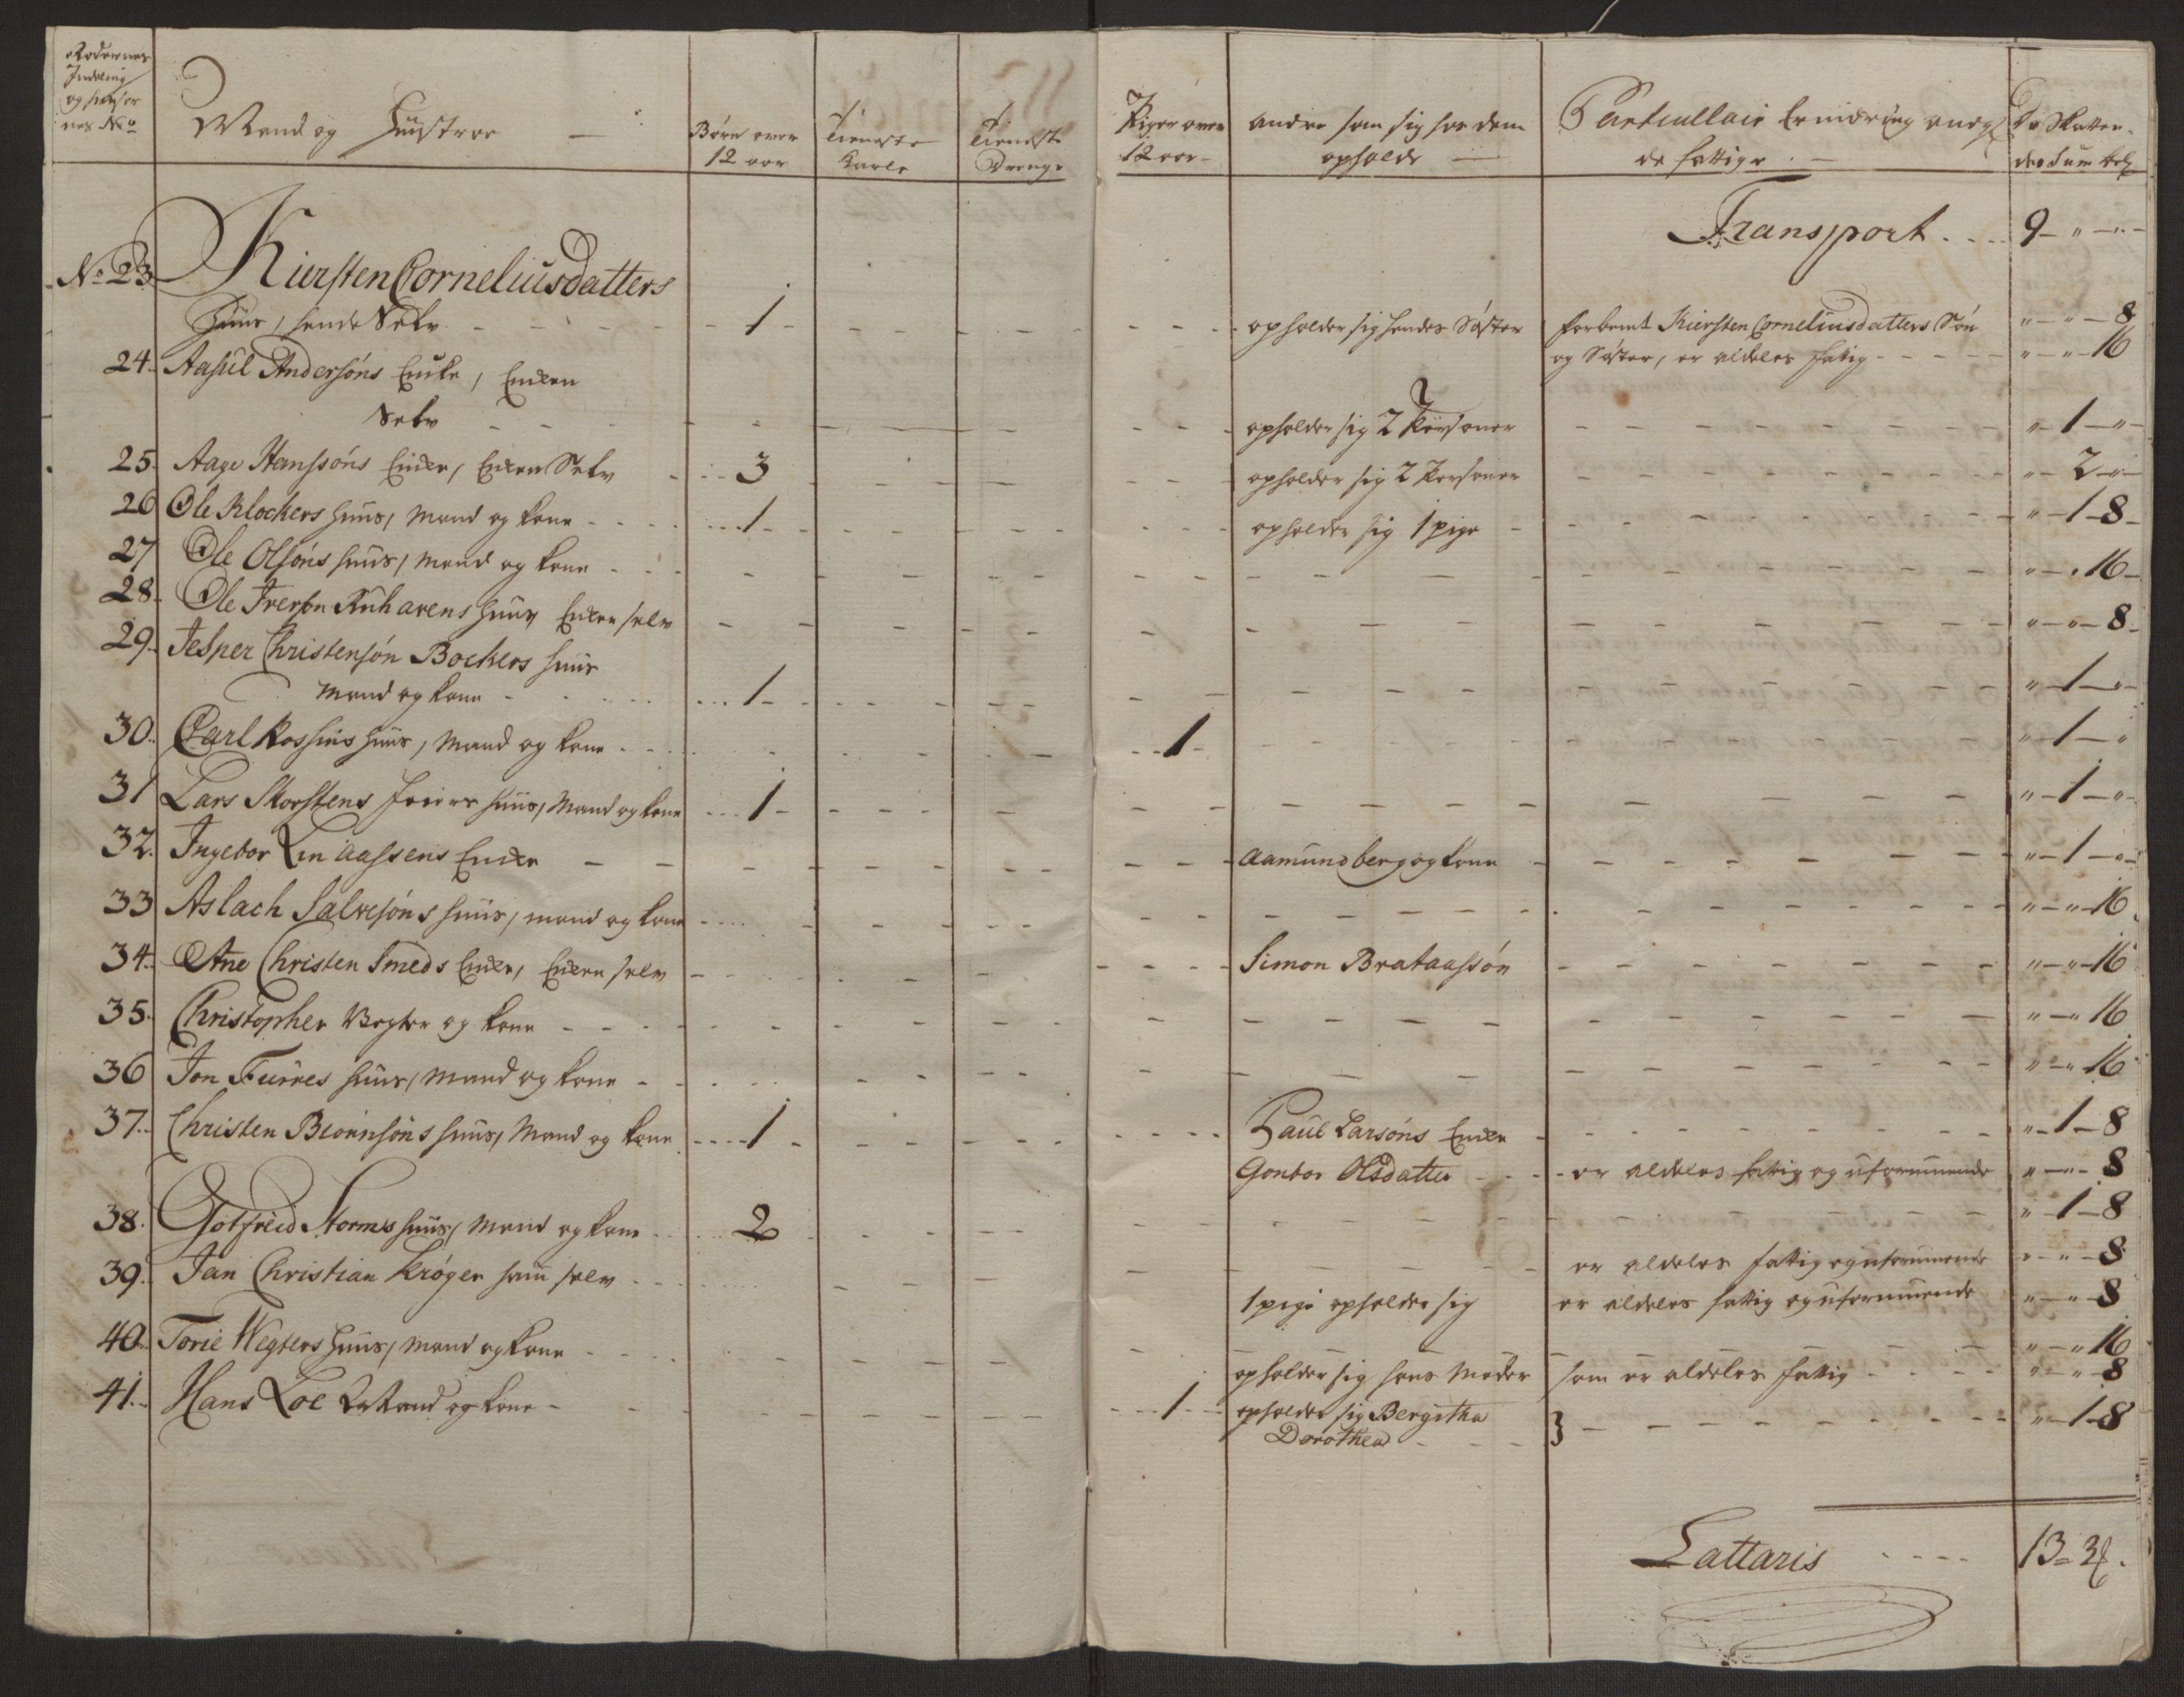 Rodernes
Indeling
og huuser
nes No
Mand og Hustroe
Børn over
12 aar
Tieneste
Karle
Tieneste
Drenge
Piger over
12 aar
andre som sig hos dem
opholde
Particullair Erindring ang
de fattige
De Skatten-
des Sum
Transport 9 - " - "
No 23 Kiersten Corneliusdatters
Huus, hende Selv 1 opholder sig hendes Søster forbemt Kiersten Corneliusdatters Søn " - " - 8
og Søster, er aldeles fatig " - " - 16
24. Aasul Andersøns Encke, Encken
Selv opholder sig 2 Personer " - 1 - "
25. Aage Hanssøns Encke, Encken Selv 3 opholder sig 2 Personer " - 2 - "
26 Ole Klockers huus, Mand og kone 1 opholder sig 1 pige " - 1 - 8
27 Ole Olsøns huus, Mand og kone " - " 16
28. Ole Iversøn Ruhavens huus Encken selv " - " - 8
29. Jesper Christensøn Bockers huus
Mand og kone 1 " - 1 - "
30. Carl Rossius huus, Mand og kone 1 " - 1 - "
31 Lars Skorstens feiers huus, Mand og kone 1 " - 1 - "
32. Ingebor Linaassens Encke Aamund berg og kone " - 1 - "
33 Aslach Salvesøns huus, mand og kone " - " 16
34. Ane Christen Smeds Encke, Encken selv Simon Brataassøn " - " 16
35. Christopher Vegter og kone " - " 16
36 Jon Furres huus, Mand og kone " - " 16
37. Christen Biørnsøns huus, Mand og kone 1 Paul Larsøns Encke " - 1 - 8
Gonbor Olsdatter er aldeles fatig og uformuende " - " - 8
38. Gotfried Storms huus, Mand og kone 2 " - 1 - 8
39. Jan Christian Krøger ham selv er aldeles fattig og uformuende " - " - 8
1 pige opholder sig er aldeles fattig og uformuende " - " - 8
40. Torie Wegters huus, mand og kone " - " 16
opholder sig hans Moder som er aldeles fattig " - " - 8
41. Hans Loe Mand og kone 1 opholder sig Bergitha " - 1 - 8
Dorothea
Lattaris 13 = 3